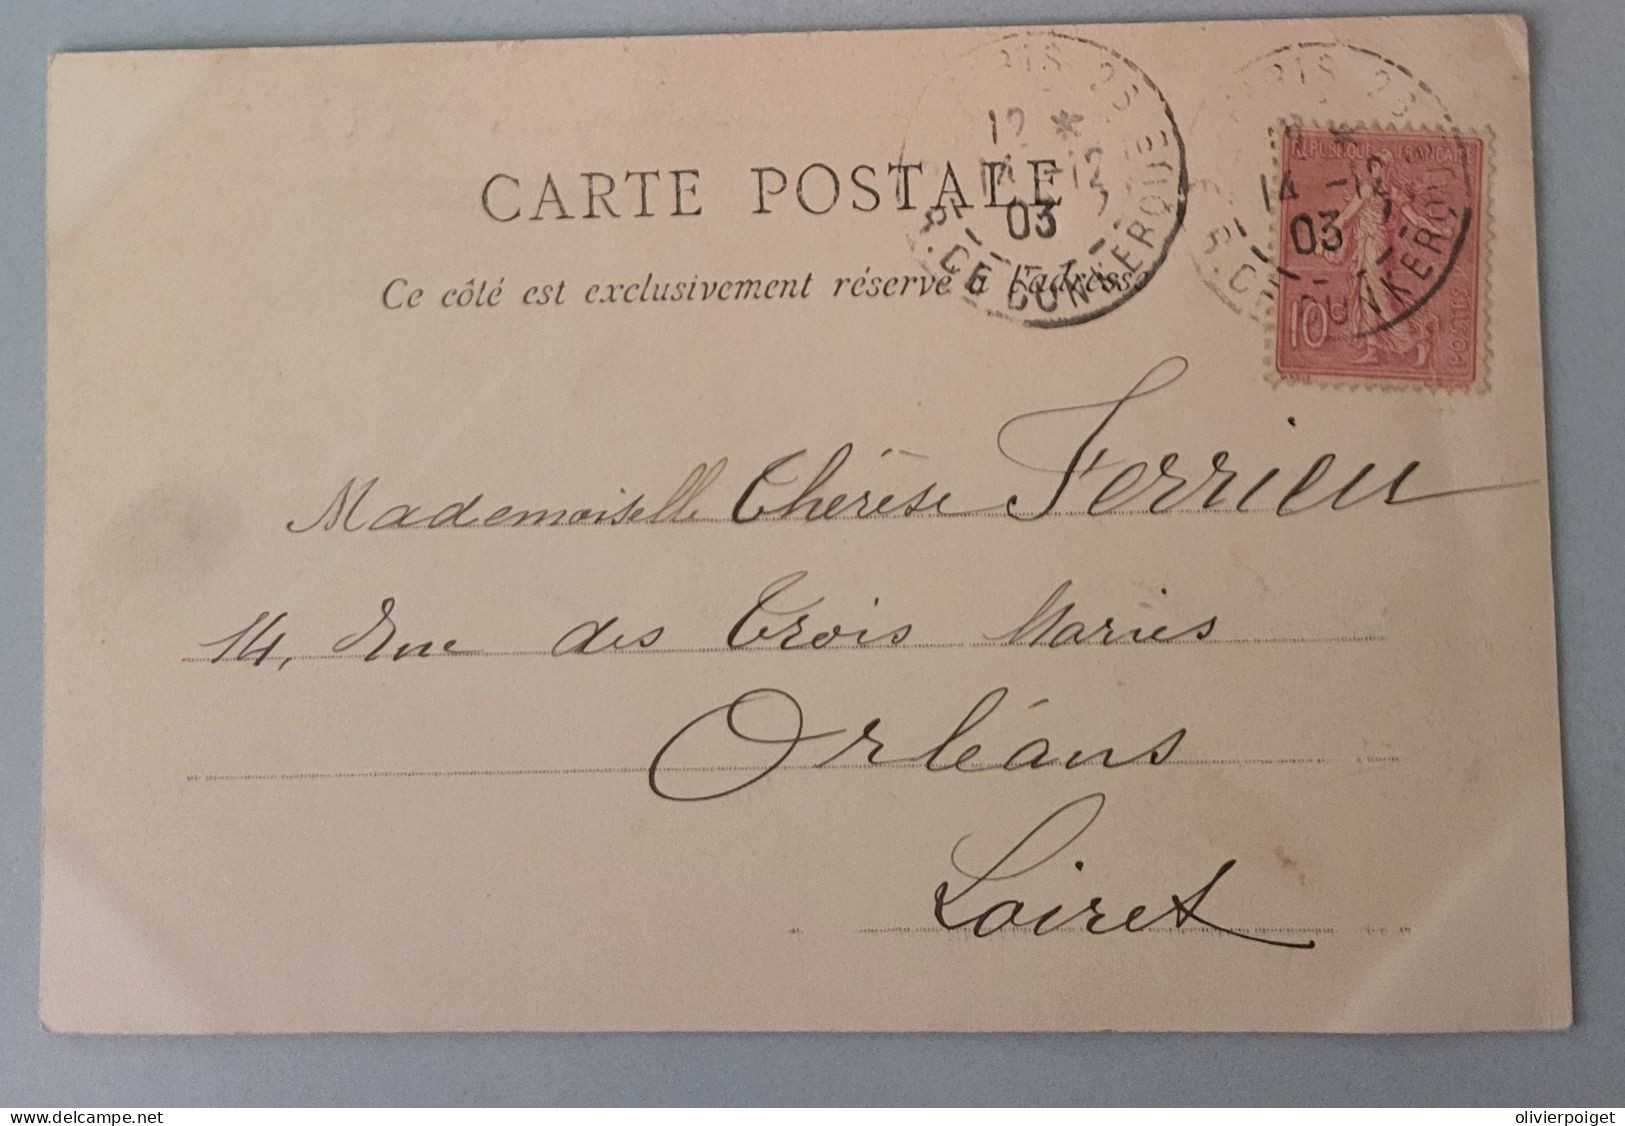 CARTE POSTALE
Ce côté est exclusivement réservé à l'adresse
PARIS 26
12 *
14 -12
03
R. DE DUNKERQUE
PARIS 26
14 -12
03
R. DE DUNKERQUE
REPUBLIQUE FRANÇAISE
10 c
POSTES
Mademoiselle Thérèse Ferrieu
14, Rue des Trois Maries
Orléans
Loiret
www.delcampe.net
olivierpoiget